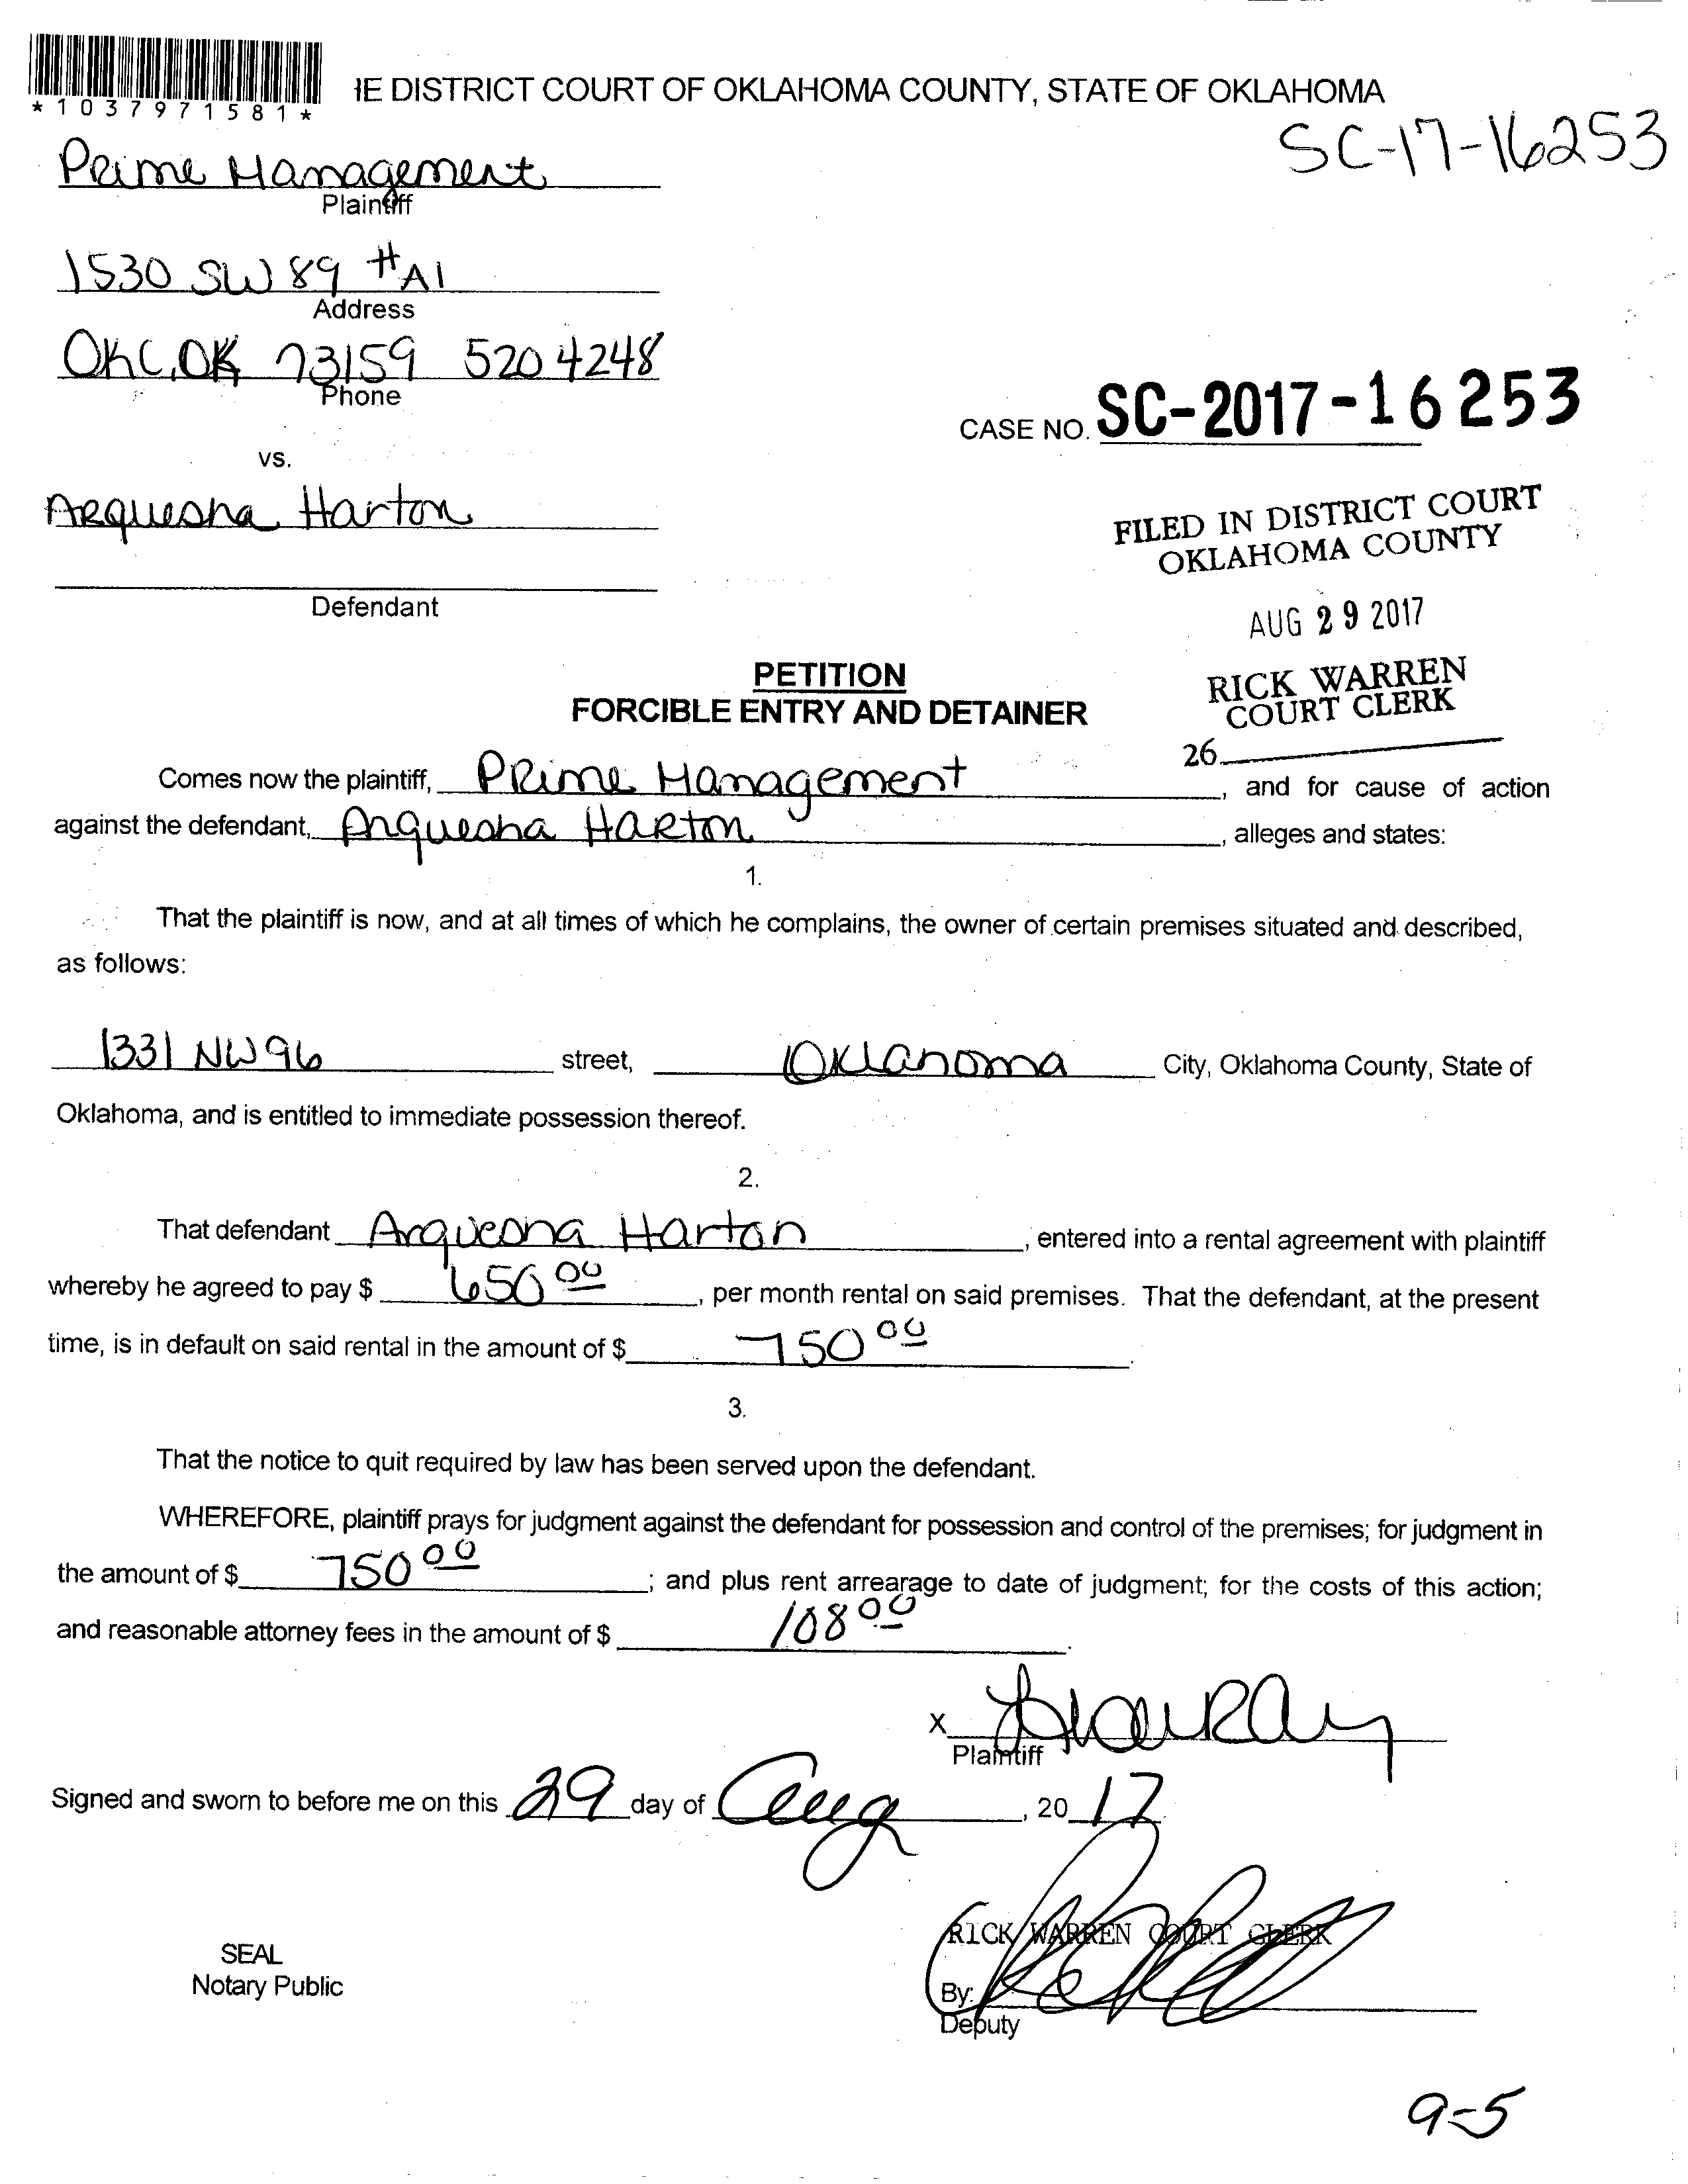 *1037971581*
IE DISTRICT COURT OF OKLAHOMA COUNTY, STATE OF OKLAHOMA
SC-17-16253
Prime Management
Plaintiff
1530 SW 89 #A1
Address
OKC, OK 73159 520 4248
Phone
CASE NO. SC-2017-16253
vs.
Arquesha Harton
Defendant
FILED IN DISTRICT COURT
OKLAHOMA COUNTY
AUG 29 2017
RICK WARREN
COURT CLERK
26
PETITION
FORCIBLE ENTRY AND DETAINER
Comes now the plaintiff, Prime Management, and for cause of action
against the defendant, Arquesha Harton, alleges and states:
1.
That the plaintiff is now, and at all times of which he complains, the owner of certain premises situated and described,
as follows:
1331 NW 96 street, Oklahoma City, Oklahoma County, State of
Oklahoma, and is entitled to immediate possession thereof.
2.
That defendant Arquesha Harton, entered into a rental agreement with plaintiff
whereby he agreed to pay $ 650 00, per month rental on said premises. That the defendant, at the present
time, is in default on said rental in the amount of $ 750 00.
3.
That the notice to quit required by law has been served upon the defendant.
WHEREFORE, plaintiff prays for judgment against the defendant for possession and control of the premises; for judgment in
the amount of $ 750 00; and plus rent arrearage to date of judgment; for the costs of this action;
and reasonable attorney fees in the amount of $ 108 00.
X
Plaintiff
Signed and sworn to before me on this 29 day of Aug, 20 17
RICK WARREN COURT CLERK
SEAL
Notary Public
By:
Deputy
9-5